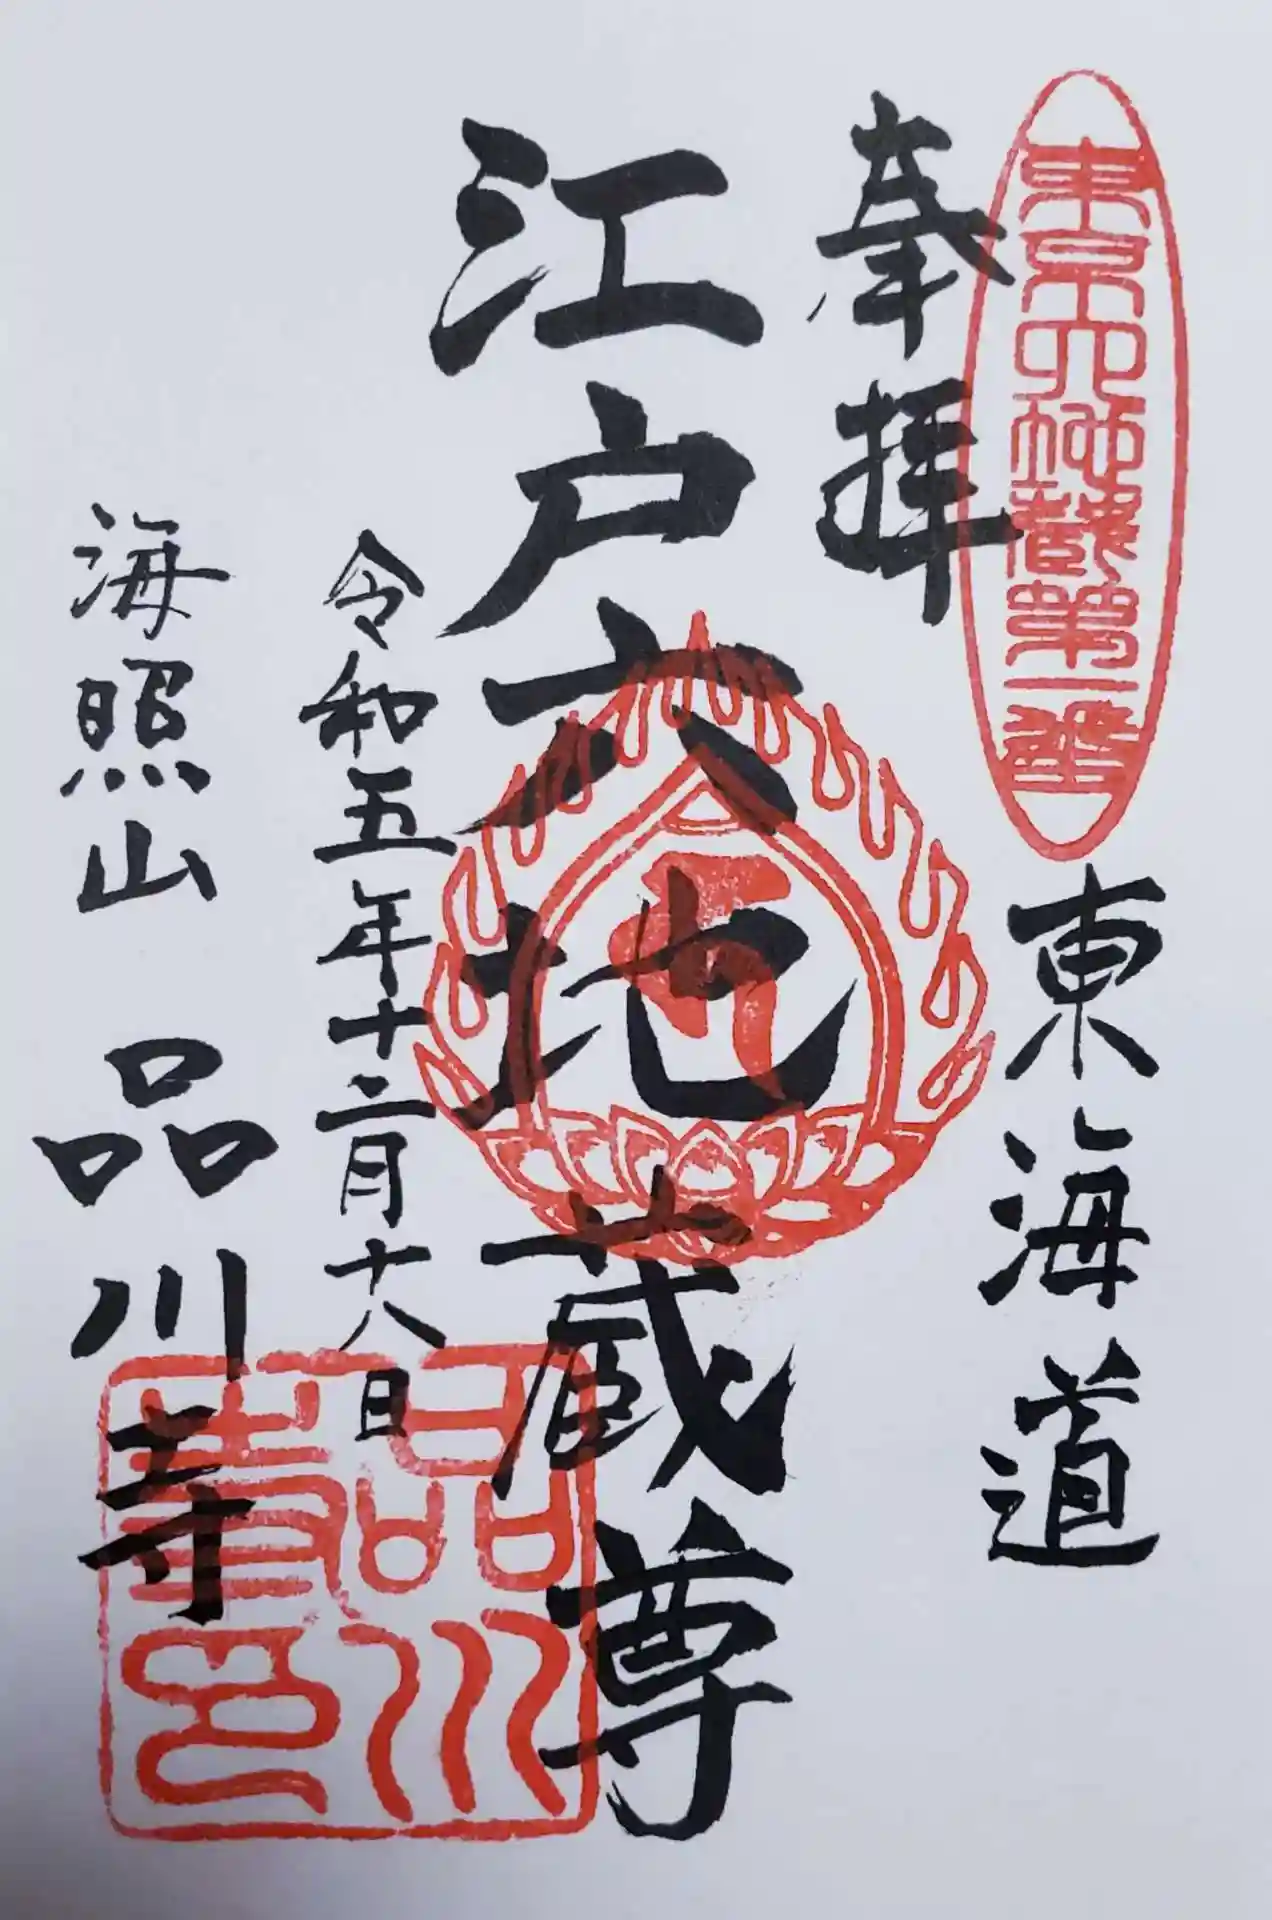 東京六地蔵第一番
奉拝
東海道
江戸六地蔵尊
令和五年十二月十八日
海照山 品川寺
品川寺印